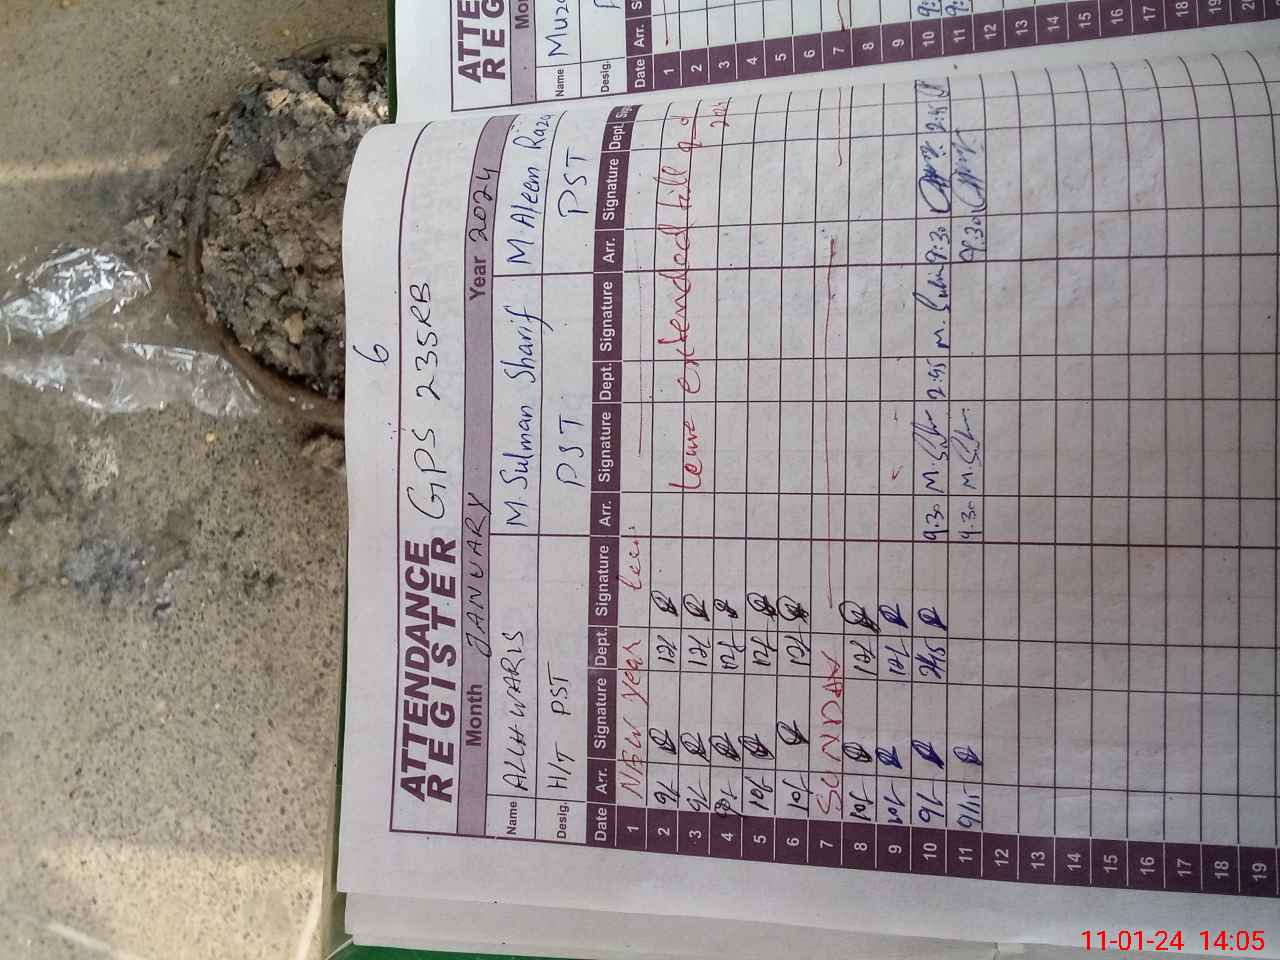 6
ATTENDANCE
REGISTER GPS 235RB
Month JANUARY Year 2024
Name ALLH WARIS M. Sulman Sharif M. Aleem Raza
Desig. H/T PST PST PST
Date Arr. Signature Dept. Signature Arr. Signature Dept. Signature Arr. Signature Dept. Sig
1 New year
2 9/- 12/-
3 9/- 12/- Leave extended till
4 12/- 2024
5 10/- 12/-
6 10/- 12/-
7 SUNDAY
8 10/- 12/-
9 10/- 12/-
10 9/- 2/45 9.30 2:45 9:30 2:45
11 9/15 9.30 9.30
12
13
14
15
16
17
18
19
ATTE
REG
Mon
Name Muza
Desig.
Date Arr. S
1
2
3
4
5
6
7
8
9
10
11
12
13
14
15
16
17
18
19
20
11-01-24 14:05